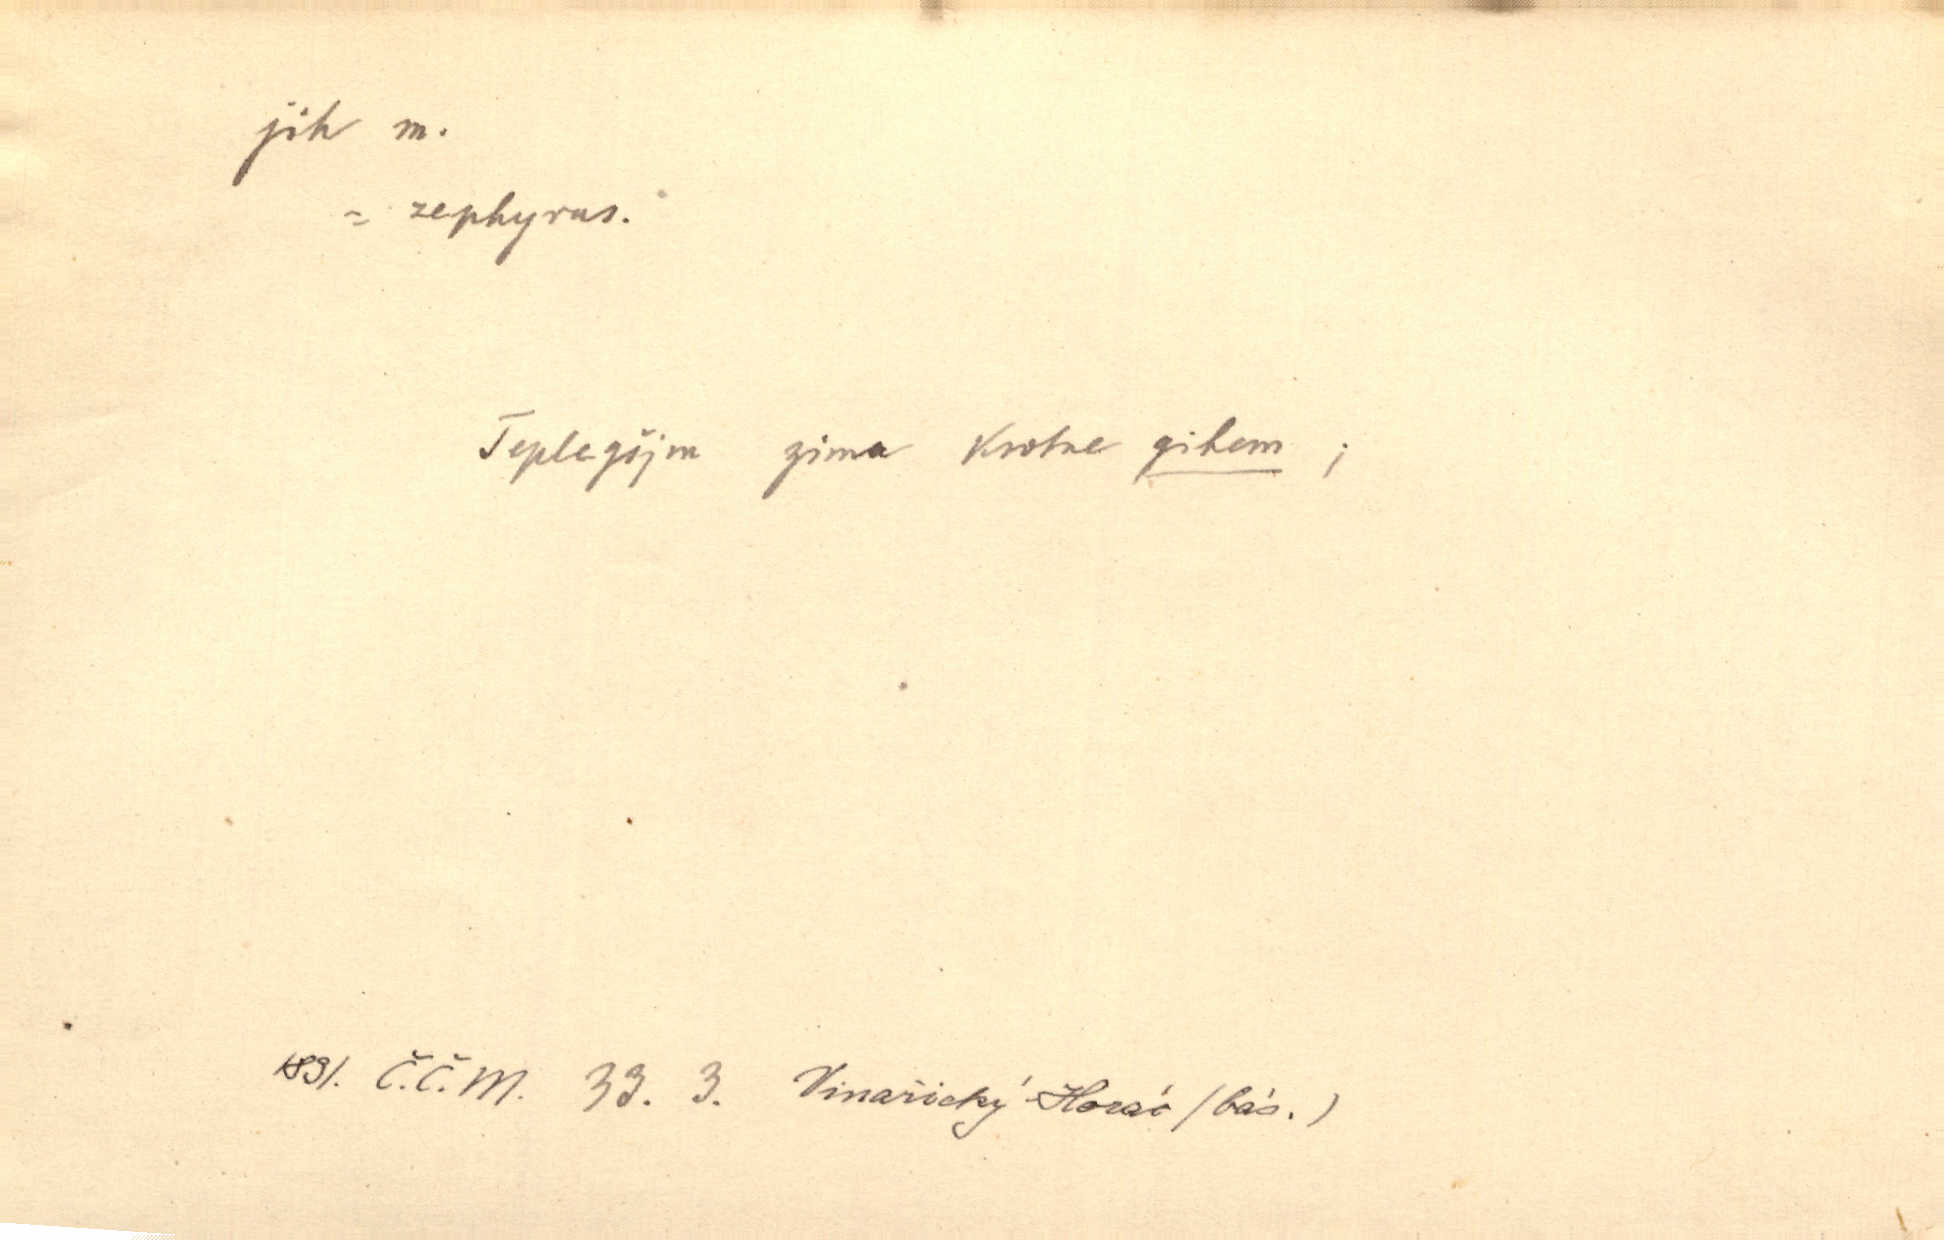 jih m.
= zephyrus.
Teplegšjm zima krotne gihem ;
1831. Č.Č.M. 33. 3. Vinařický-Horác /bás.)